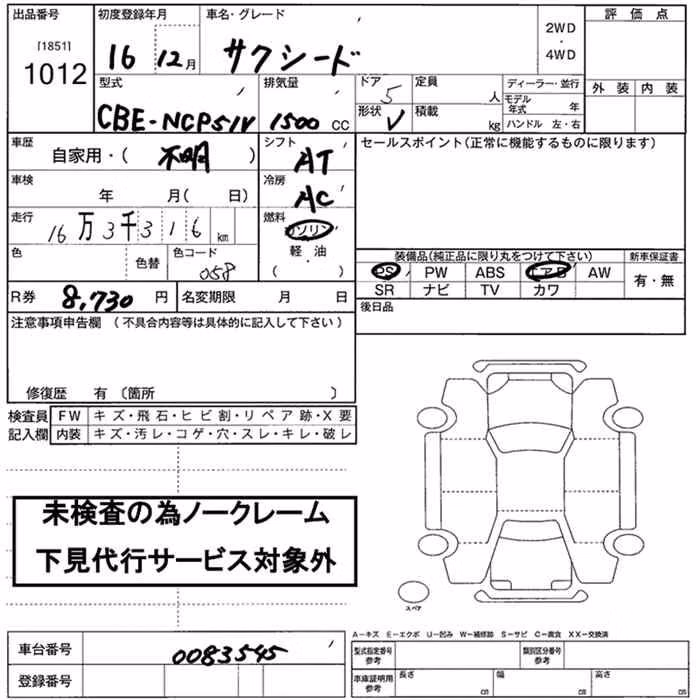 出品番号 初度登録年月 車名・グレード 評価点
[1851] 1012 16 12月 サクシード 2WD・4WD
型式 排気量 ドア 定員 ディーラー・並行 外装 内装
CBE-NCP51V 1500 CC 5 人 モデル年式 年
形状 V 積載 kg ハンドル 左・右
車歴 シフト セールスポイント(正常に機能するものに限ります)
自家用・( 不明 ) AT
車検 冷房
年 月( 日) AC
走行 燃料
16万3千316 km ガソリン
色 色替 色コード 058 軽・油
( )
装備品(純正品に限り丸をつけて下さい) 新車保証書
PS PW ABS エアB AW 有・無
SR ナビ TV カワ
R券 8,730 円 名変期限 月 日
後日品
注意事項申告欄 (不具合内容等は具体的に記入して下さい)
修復歴 有 (箇所 )
検査員 FW キズ・飛石・ヒビ割・リペア跡・X要
記入欄 内装 キズ・汚レ・コゲ・穴・スレ・キレ・破レ
未検査の為ノークレーム
下見代行サービス対象外
スペア
A-キズ E-エクボ U-凹み W-補修跡 S-サビ C-腐食 XX-交換済
車台番号 0083545 型式指定番号 参考 類別区分番号 参考
登録番号 車庫証明用 参考 長さ cm 幅 cm 高さ cm